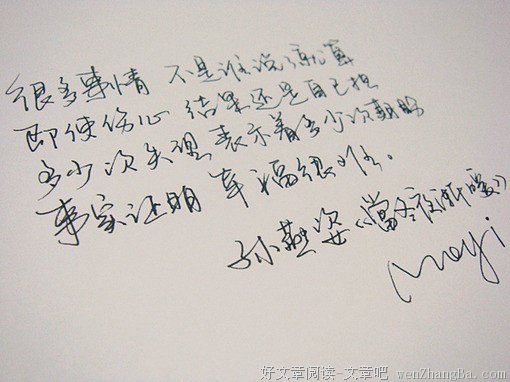 很多事情 不是谁说了就算
即使伤心 结果还是自己担
多少次失望 表示着多少次期盼
事实证明 幸福很难。
孙燕姿《當冬夜渐暖》
Meyi
好文章阅读-文章吧 wenZhangBa.com